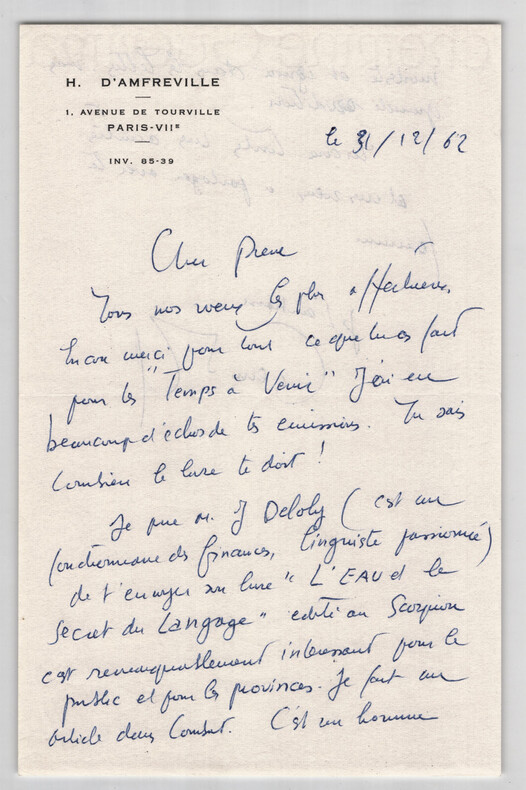 H. D'AMFREVILLE
1. AVENUE DE TOURVILLE
PARIS-VIIᴱ
INV. 85-39
le 31/12/62
Cher Pierre
Tous nos voeux les plus affectueux
Encore merci pour tout ce que tu as fait
pour les "Temps à Venir" J'ai eu
beaucoup d'échos de tes émissions. Tu sais
combien le livre te doit !
Je prie M. J Deloly (c'est un
fonctionnaire des finances, linguiste passionné)
de t'envoyer son livre "L'EAU et le
secret du Langage" edité au Scorpion
c'est remarquablement intéressant pour le
public et pour les provinces. Je fais un
article dans Combat. C'est un homme